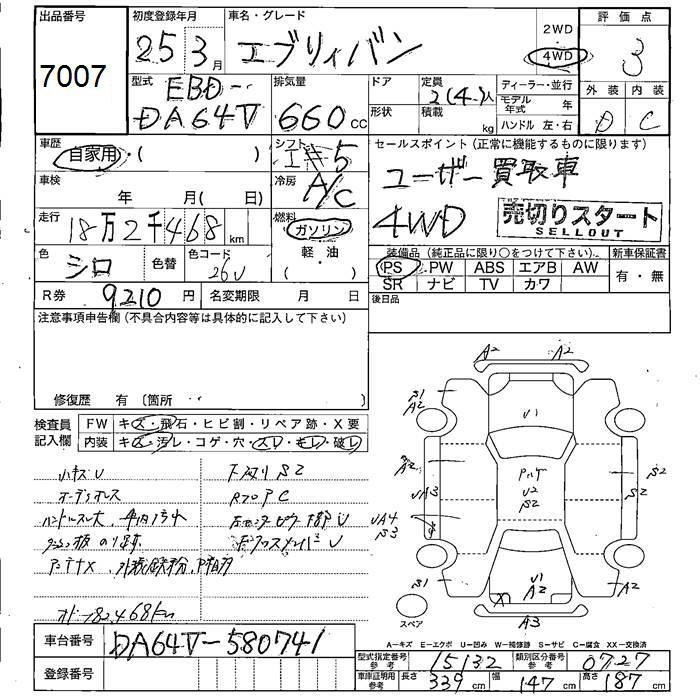 出品番号
7007
初度登録年月
25 3 月
車名・グレード
エブリィバン
2WD
4WD
評価点
3
外装 内装
D C
型式
EBD-
DA64V
排気量
660 cc
ドア
形状
定員
2(4)人
積載
kg
ディーラー・並行
モデル年式 年
ハンドル 左・右
車歴
自家用・( )
シフト
5
セールスポイント(正常に機能するものに限ります)
ユーザー買取車
4WD
売切りスタート
SELLOUT
車検
年 月( 日)
冷房
A/C
走行
18万2千468 km
燃料
ガソリン
軽・油
( )
色
シロ
色替
色コード
26U
装備品(純正品に限り○をつけて下さい)
PS PW ABS エアB AW
SR ナビ TV カワ
新車保証書
有・無
後日品
R券 9210 円
名変期限 月 日
注意事項申告欄(不具合内容等は具体的に記入して下さい)
修復歴 有〔箇所
検査員
記入欄
FW キズ・飛石・ヒビ割・リペア跡・X要
内装 キズ・汚レ・コゲ・穴・スレ・キレ・破レ
小キズU
下廻りS2
オーディオレス
ハンドルスレ大
82,468km
A2 A2
S1
A2
U1
A2
UA3
UA4
S3
U2
S2
S2
S2
S1
U1
A2
X
S1
A3
スペア
A-キズ E-エクボ U-凹み W-補修跡 S-サビ C-腐食 XX-交換済
車台番号 DA64V-580741
登録番号
型式指定番号 参考 15132
類別区分番号 参考 0727
車庫証明用 参考 長さ 339 cm 幅 147 cm 高さ 187 cm